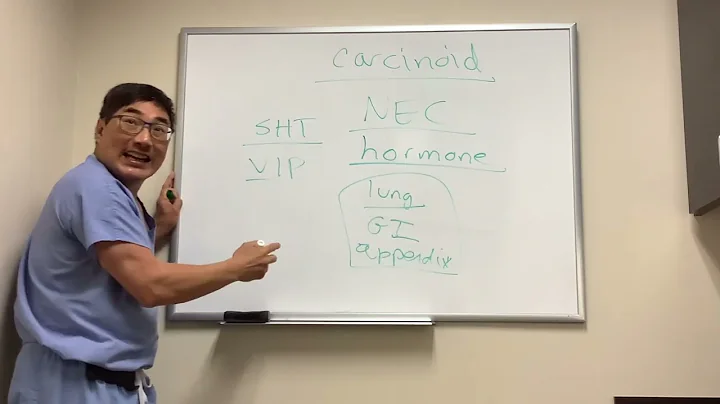 carcinoid
NEC
5HT
hormone
VIP
lung
GI
appendix